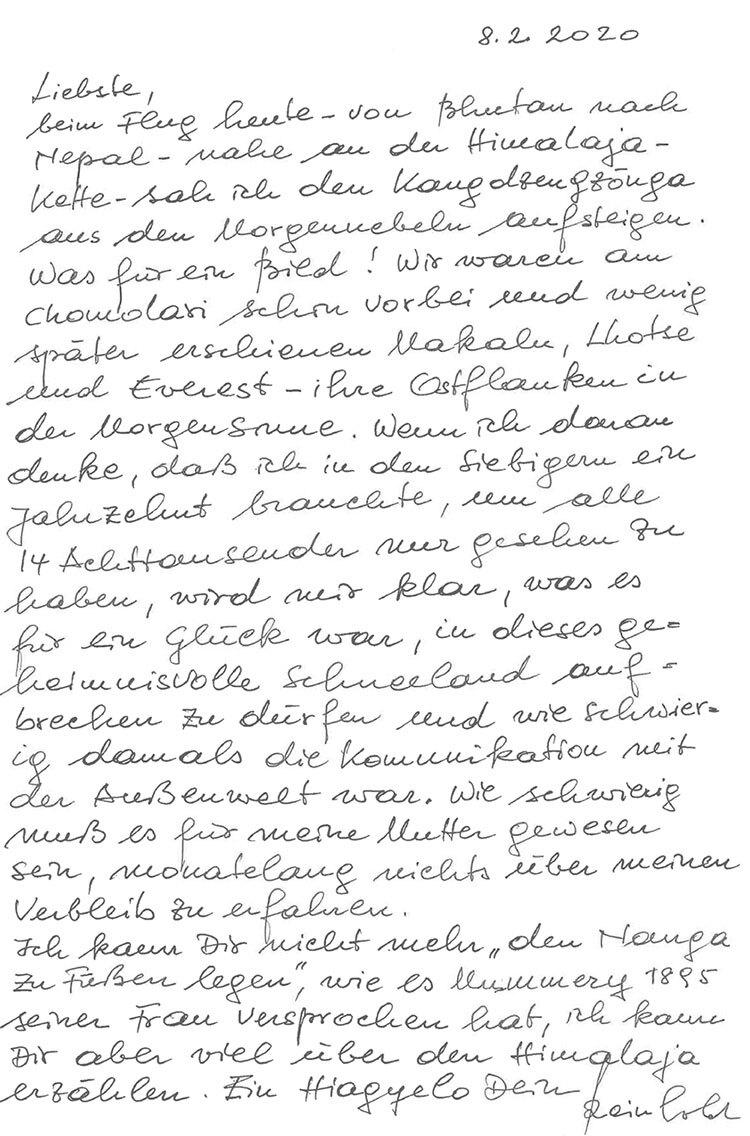 8.2.2020
Liebste,
beim Flug heute - von Bhutan nach
Nepal - nahe an der Himalaja-
kette - sah ich den Kangdzengzönga
aus den Morgennebeln aufsteigen.
Was für ein Bild! Wir waren am
Chomolari schon vorbei und wenig
später erschienen Makalu, Lhotse
und Everest - ihre Ostflanken in
der Morgensonne. Wenn ich daran
denke, daß ich in den Siebigern ein
Jahrzehnt brauchte, um alle
14 Achttausender nur gesehen zu
haben, wird mir klar, was es
für ein Glück war, in dieses ge=
heimnisvolle Schneeland auf=
brechen zu dürfen und wie schwier=
ig damals die Kommunikation mit
der Außenwelt war. Wie schwierig
muß es für meine Mutter gewesen
sein, monatelang nichts über meinen
Verbleib zu erfahren.
Ich kann Dir nicht mehr „den Nanga
zu Füßen legen", wie es Mummery 1895
seiner Frau versprochen hat, ich kann
Dir aber viel über den Himalaja
erzählen. Ein Hiagyelo Dein
Reinhold